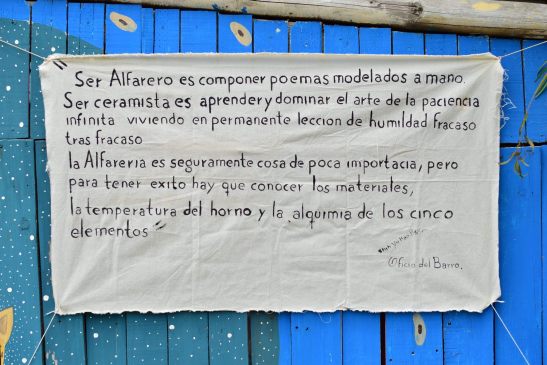 " Ser Alfarero es componer poemas modelados a mano.
Ser ceramista es aprender y dominar el arte de la paciencia
infinita viviendo en permanente leccion de humildad fracaso
tras fracaso
la Alfareria es seguramente cosa de poca importacia, pero
para tener exito hay que conocer los materiales,
la temperatura del horno y la alquimia de los cinco
elementos "
Oficio del Barro.